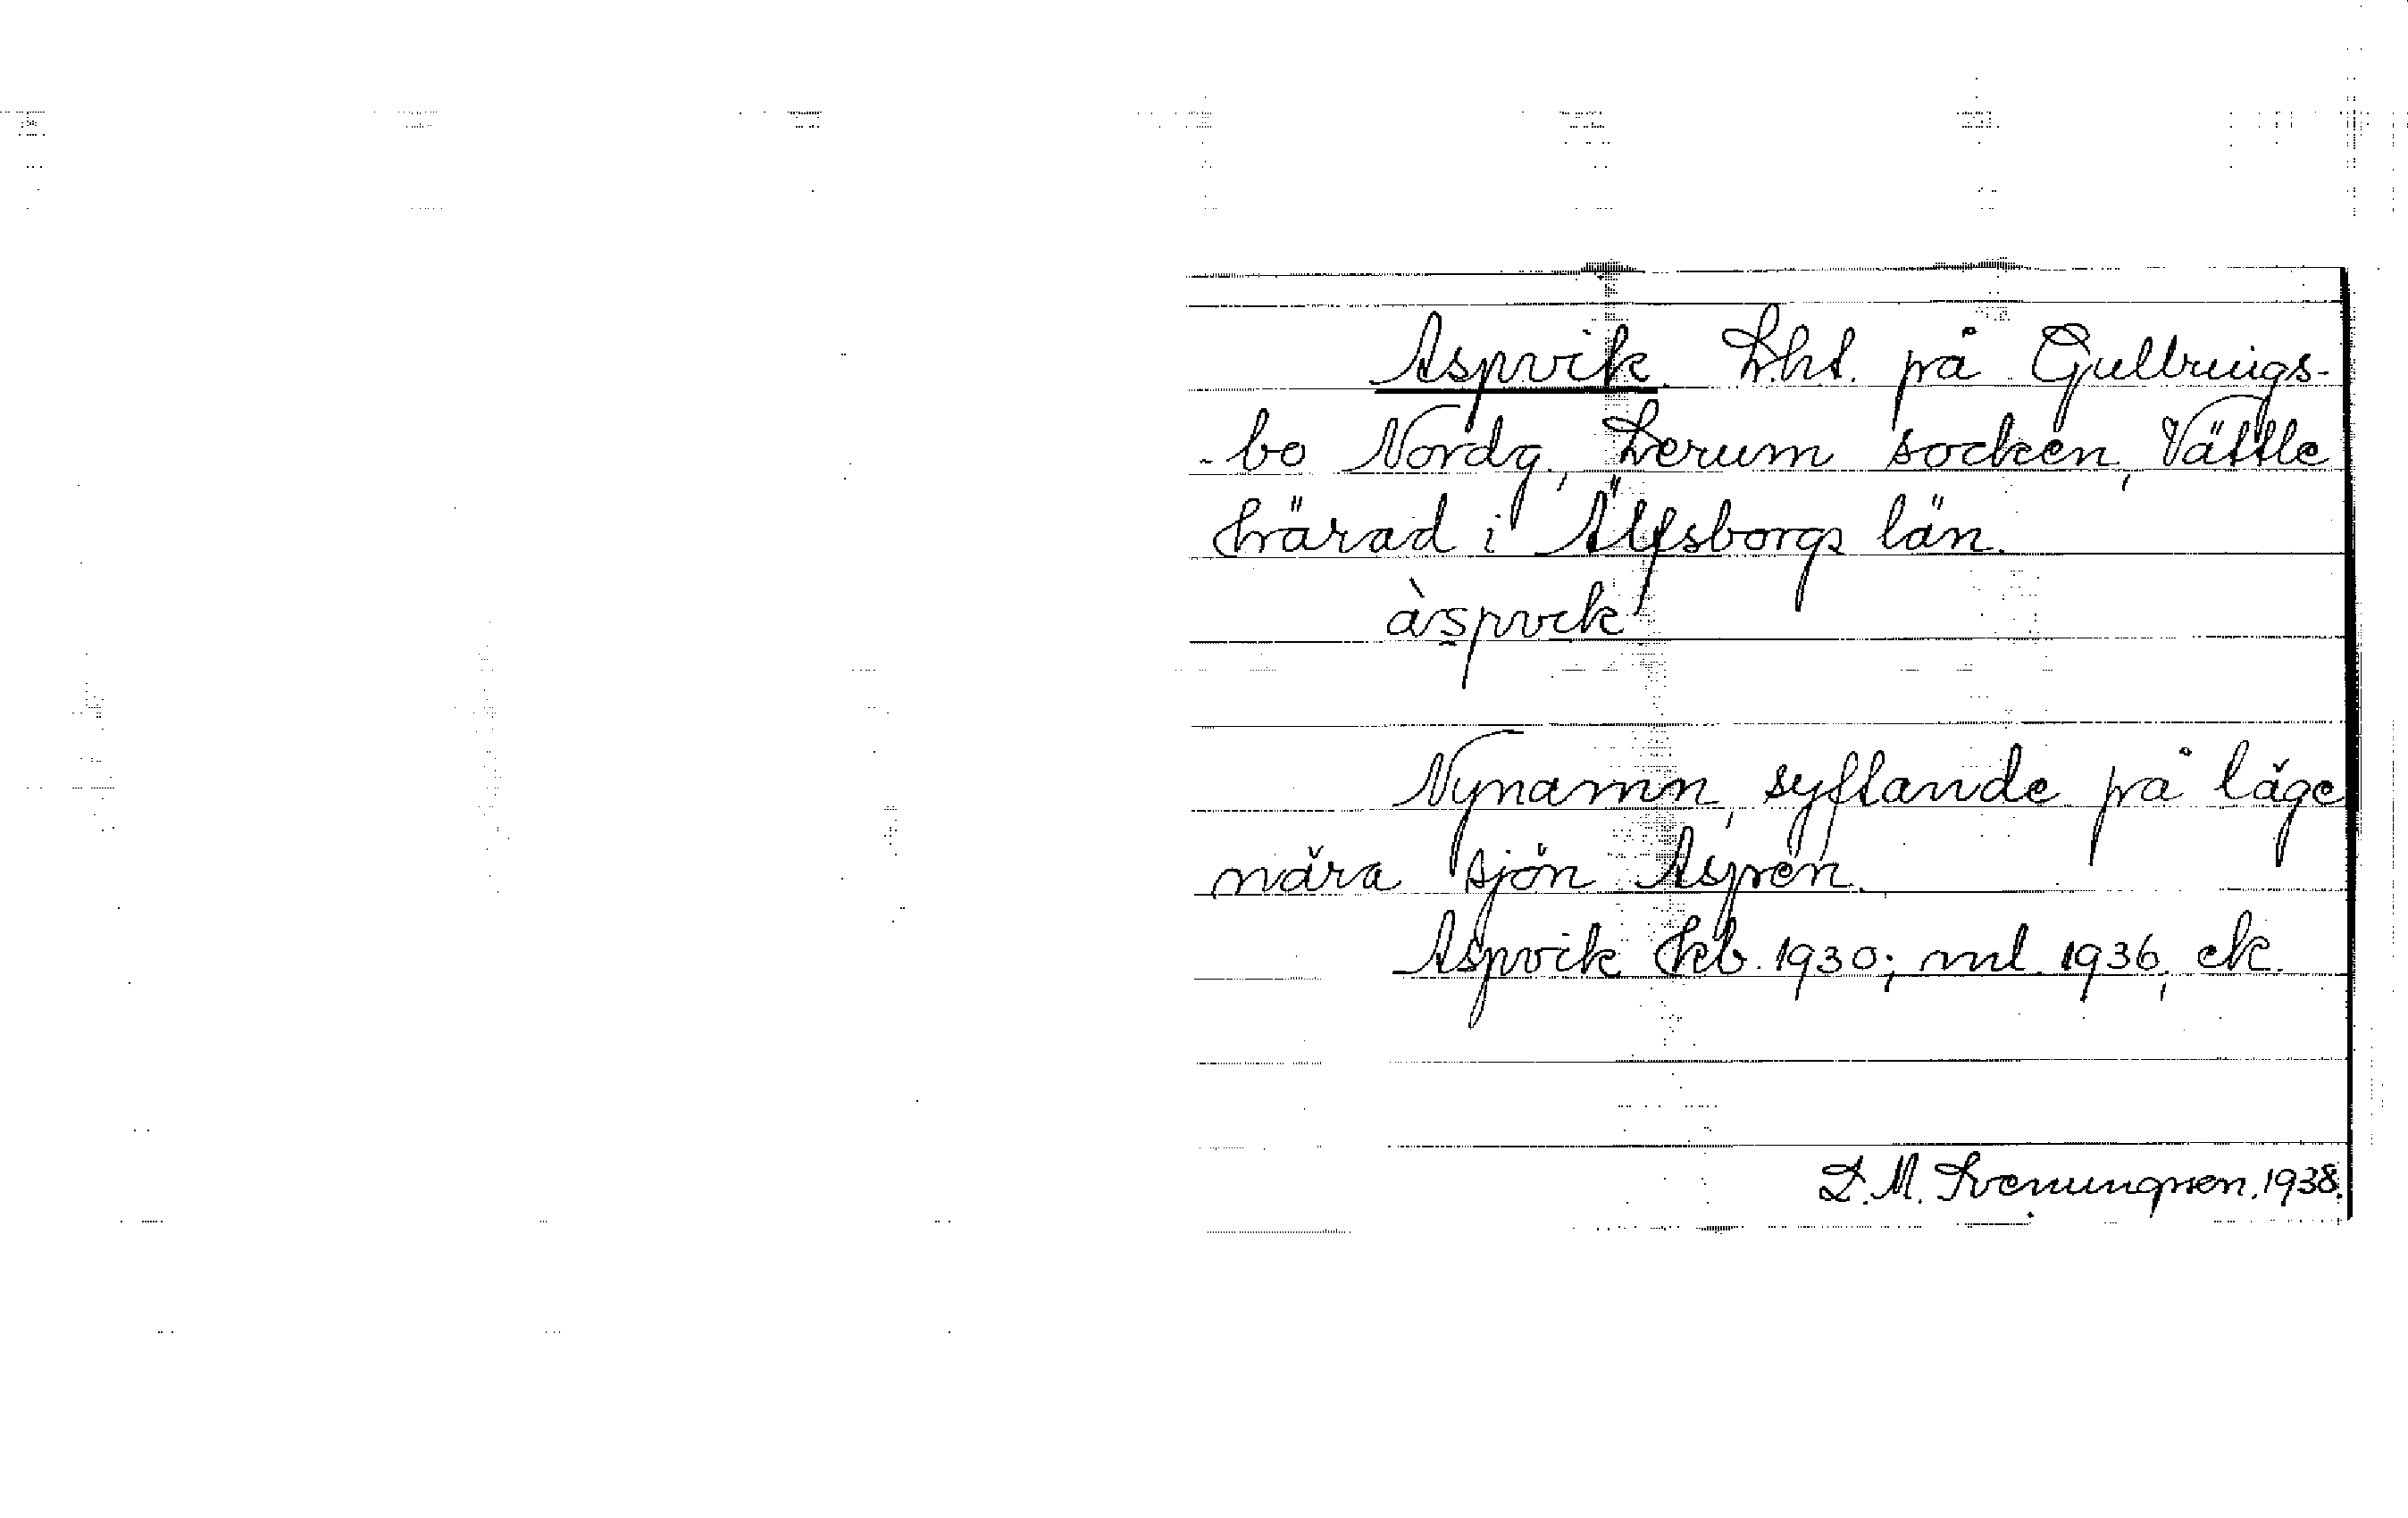 Aspvik. Lht. på Gullrings-
-bo Nordg., Lerum socken, Vättle
härad i Älfsborgs län.
àspvik
Nynamn, syftande på läge
nära sjön Aspen.
Aspvik kb. 1930; ml. 1936, ek.
D. M. Svenungsson. 1938.